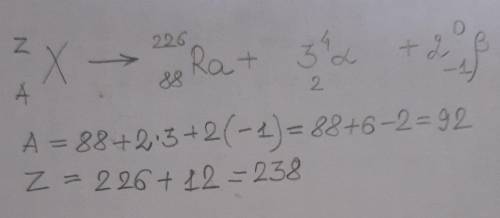 Z
A X → 226 88 Ra + 3 4 2 α + 2 0 -1 β
A = 88 + 2·3 + 2(-1) = 88 + 6 - 2 = 92
Z = 226 + 12 = 238